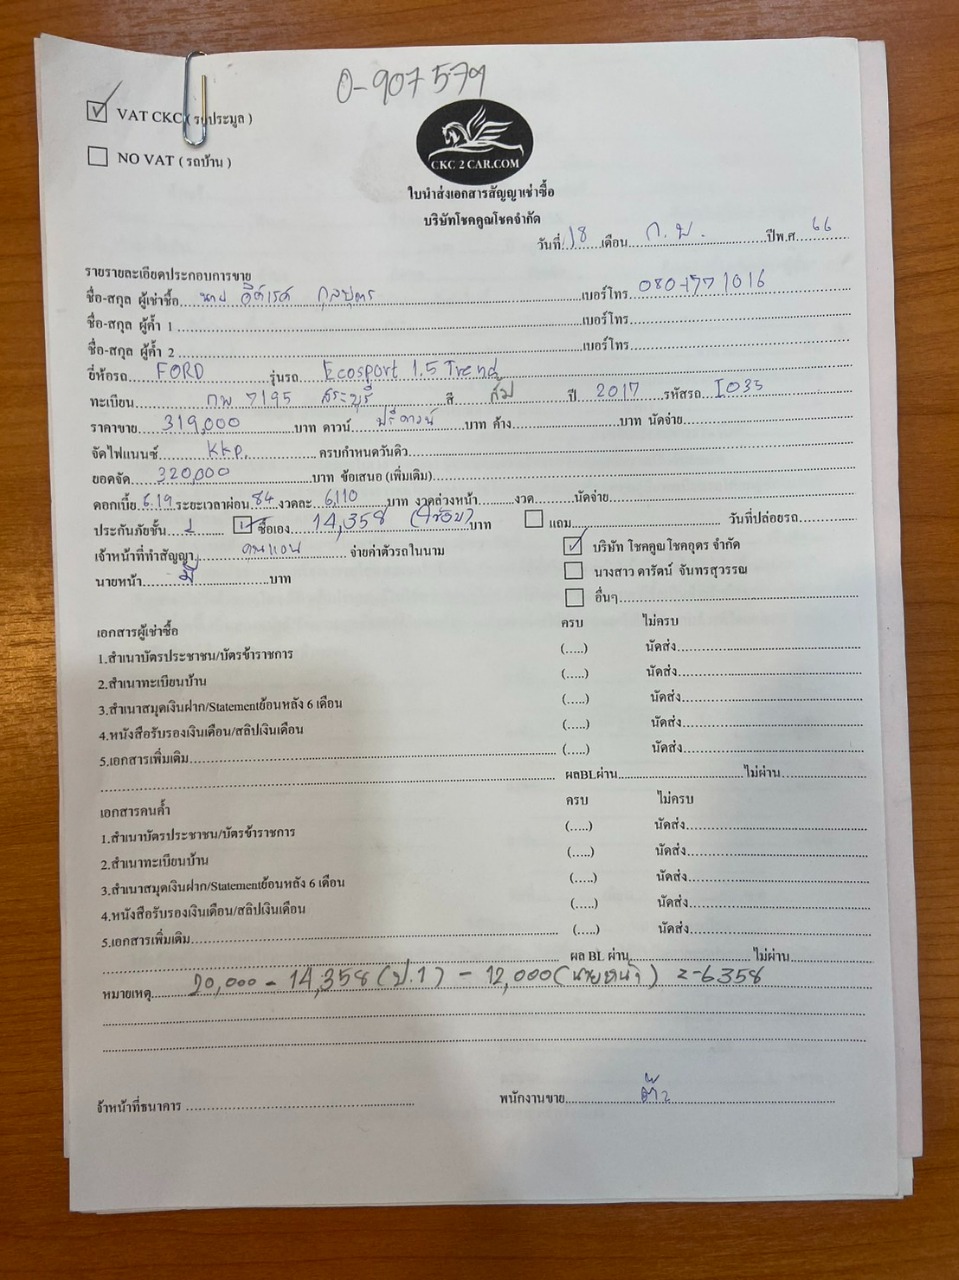 0-907579
☑ VAT CKC ( รถประมูล )
☐ NO VAT ( รถบ้าน )
CKC 2 CAR.COM
ใบนำส่งเอกสารสัญญาเช่าซื้อ
บริษัทโชคคูณโชคจำกัด
วันที่ 18 เดือน ก.พ. ปีพ.ศ 66
รายรายละเอียดประกอบการขาย
ชื่อ-สกุล ผู้เช่าซื้อ นาย กุลบุตร เบอร์โทร 080-1771016
ชื่อ-สกุล ผู้ค้ำ 1 เบอร์โทร
ชื่อ-สกุล ผู้ค้ำ 2 เบอร์โทร
ยี่ห้อรถ FORD รุ่นรถ Ecosport 1.5 Trend
ทะเบียน กพ 7195 สระบุรี สี ส้ม ปี 2017 รหัสรถ I035
ราคาขาย 319,000 บาท ดาวน์ ฟรีดาวน์ บาท ค้าง บาท นัดจ่าย
จัดไฟแนนซ์ KKP. ครบกำหนดวันคิว
ยอดจัด 320,000 บาท ข้อเสนอ (เพิ่มเติม)
ดอกเบี้ย 6.19 ระยะเวลาผ่อน 84 งวดละ 6,110 บาท งวดล่วงหน้า งวด นัดจ่าย
ประกันภัยชั้น 1 ☑ ซื้อเอง 14,358 บาท ☐ แถม วันที่ปล่อยรถ
เจ้าหน้าที่ทำสัญญา จ่ายค่าตัวรถในนาม ☑ บริษัท โชคคูณโชคอุดร จำกัด
นายหน้า มี บาท ☐ นางสาว ดารัตน์ จันทรสุวรรณ
☐ อื่นๆ
เอกสารผู้เช่าซื้อ ครบ ไม่ครบ
1.สำเนาบัตรประชาชน/บัตรข้าราชการ (.....) นัดส่ง
2.สำเนาทะเบียนบ้าน (.....) นัดส่ง
3.สำเนาสมุดเงินฝาก/Statementย้อนหลัง 6 เดือน (.....) นัดส่ง
4.หนังสือรับรองเงินเดือน/สลิปเงินเดือน (.....) นัดส่ง
5.เอกสารเพิ่มเติม (.....) นัดส่ง
ผลBLผ่าน ไม่ผ่าน
เอกสารคนค้ำ ครบ ไม่ครบ
1.สำเนาบัตรประชาชน/บัตรข้าราชการ (.....) นัดส่ง
2.สำเนาทะเบียนบ้าน (.....) นัดส่ง
3.สำเนาสมุดเงินฝาก/Statementย้อนหลัง 6 เดือน (.....) นัดส่ง
4.หนังสือรับรองเงินเดือน/สลิปเงินเดือน (.....) นัดส่ง
5.เอกสารเพิ่มเติม (.....) นัดส่ง
ผล BL ผ่าน ไม่ผ่าน
หมายเหตุ 20,000 - 14,358 (ป.1) - 12,000 (นายหน้า) = -6358
จ้าหน้าที่ธนาคาร พนักงานขาย